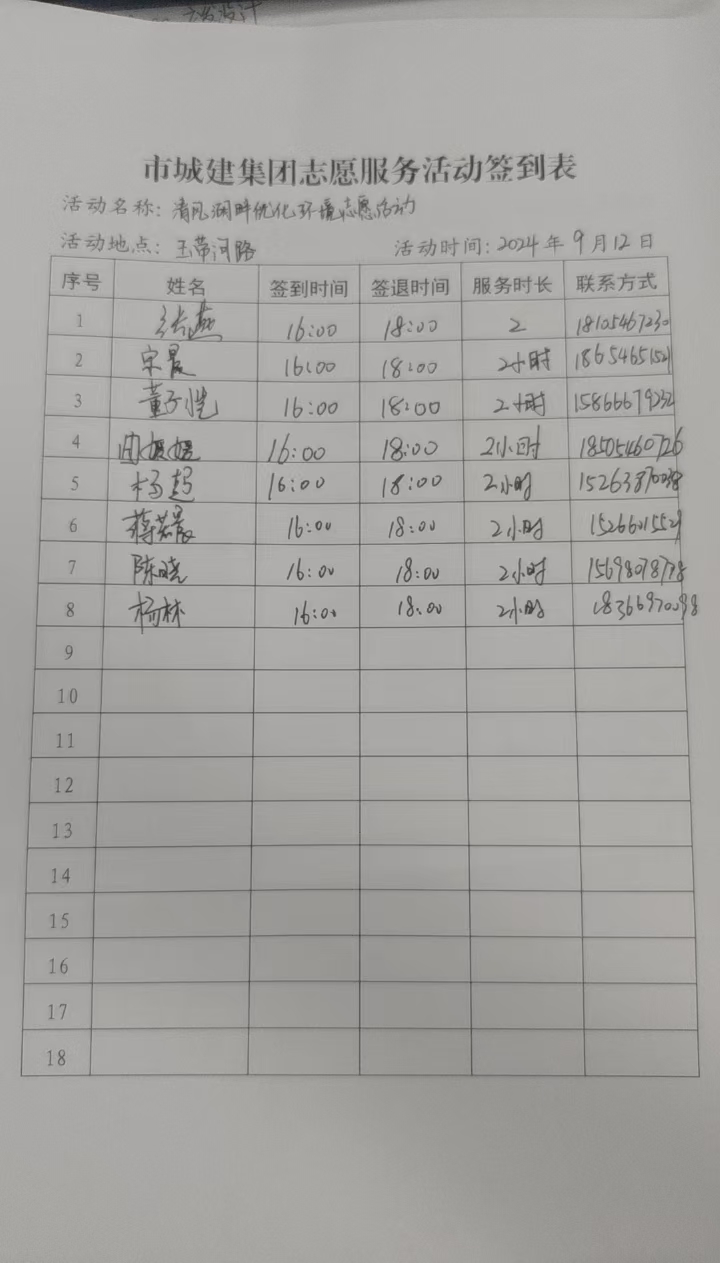 市城建集团志愿服务活动签到表
活动名称：清风湖畔优化环境志愿活动
活动地点：玉带河路 活动时间：2024年9月12日
序号 姓名 签到时间 签退时间 服务时长 联系方式
1 张燕 16:00 18:00 2 18105467230
2 宋晨 16:00 18:00 2小时 18654651521
3 董子恺 16:00 18:00 2小时 15866679232
4 16:00 18:00 2小时 18505460726
5 杨超 16:00 18:00 2小时 15263870038
6 蒋若晨 16:00 18:00 2小时 15266015529
7 陈晓 16:00 18:00 2小时 15698078778
8 杨林 16:00 18:00 2小时 18366970098
9
10
11
12
13
14
15
16
17
18